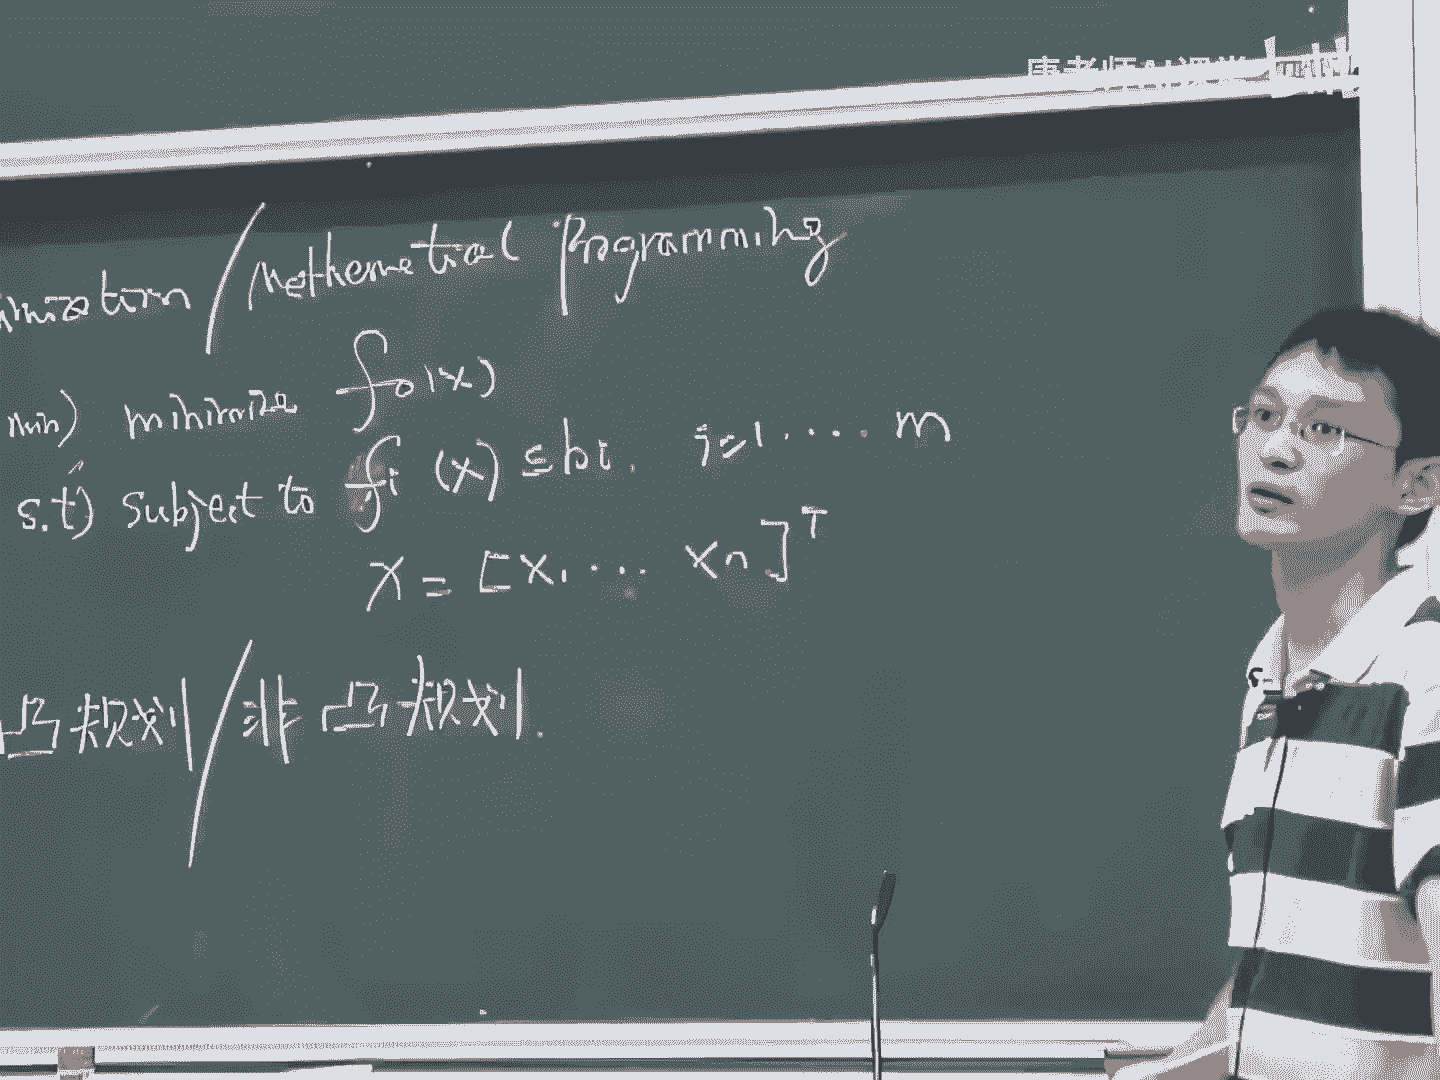 唐老师AI课堂 bilibili
imization / Mathematical Programming
min) minimize f₀(x)
s.t) subject to fi (x) ≤ bi. i=1.... m
x = [x₁... xn]ᵀ
凸规划 / 非凸规划.